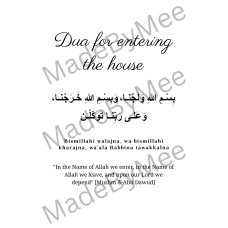 Dua for entering
the house
بِسْمِ اللهِ وَلَجْنَـا، وَبِسْمِ اللهِ خَـرَجْنَـا،
وَعَلَـى رَبِّنَـا تَوَكَّلْنَـا
Bismillahi walajna, wa bismillahi
kharajna, wa'ala Rabbina tawakkalna
"In the Name of Allah we enter, in the Name of
Allah we leave, and upon our Lord we
depend" [Muslim & Abu Dawud]
MadeByMee
MadeByMee
MadeByMee